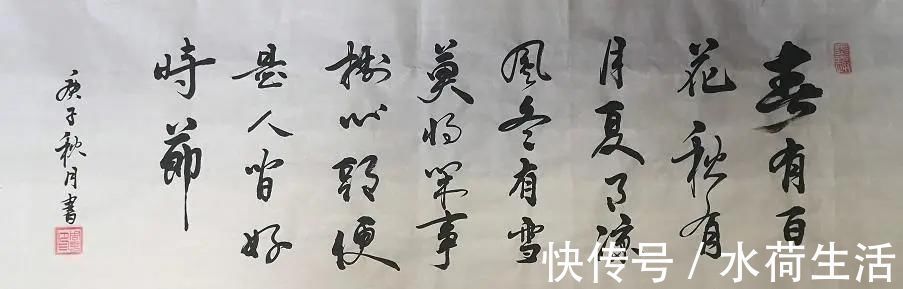 春有百
花秋有
月夏有涼
風冬有雪
莫將閑事
掛心頭便
是人間好
時節
庚子秋月書
快传号 / 水荷生活